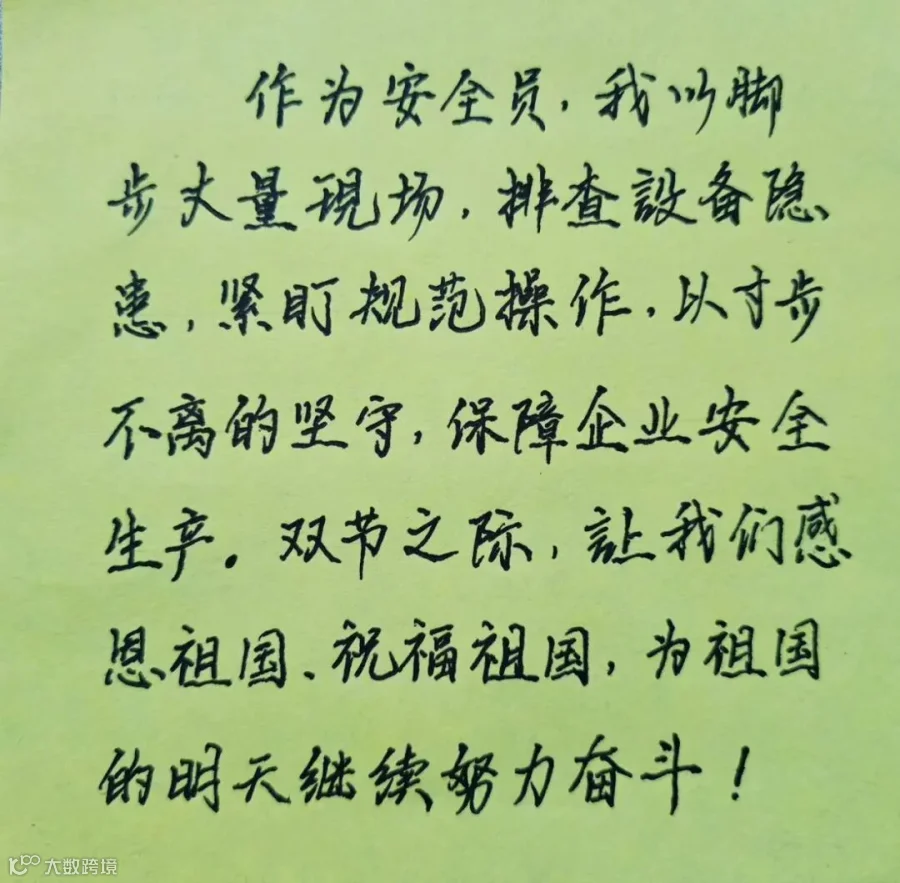 作为安全员，我以脚
步丈量現场，排查設备隐
患，紧盯规范操作，以寸步
不离的坚守，保障企业安全
生产。双节之际，让我们感
恩祖国、祝福祖国，为祖国
的明天继续努力奋斗！
大数跨境